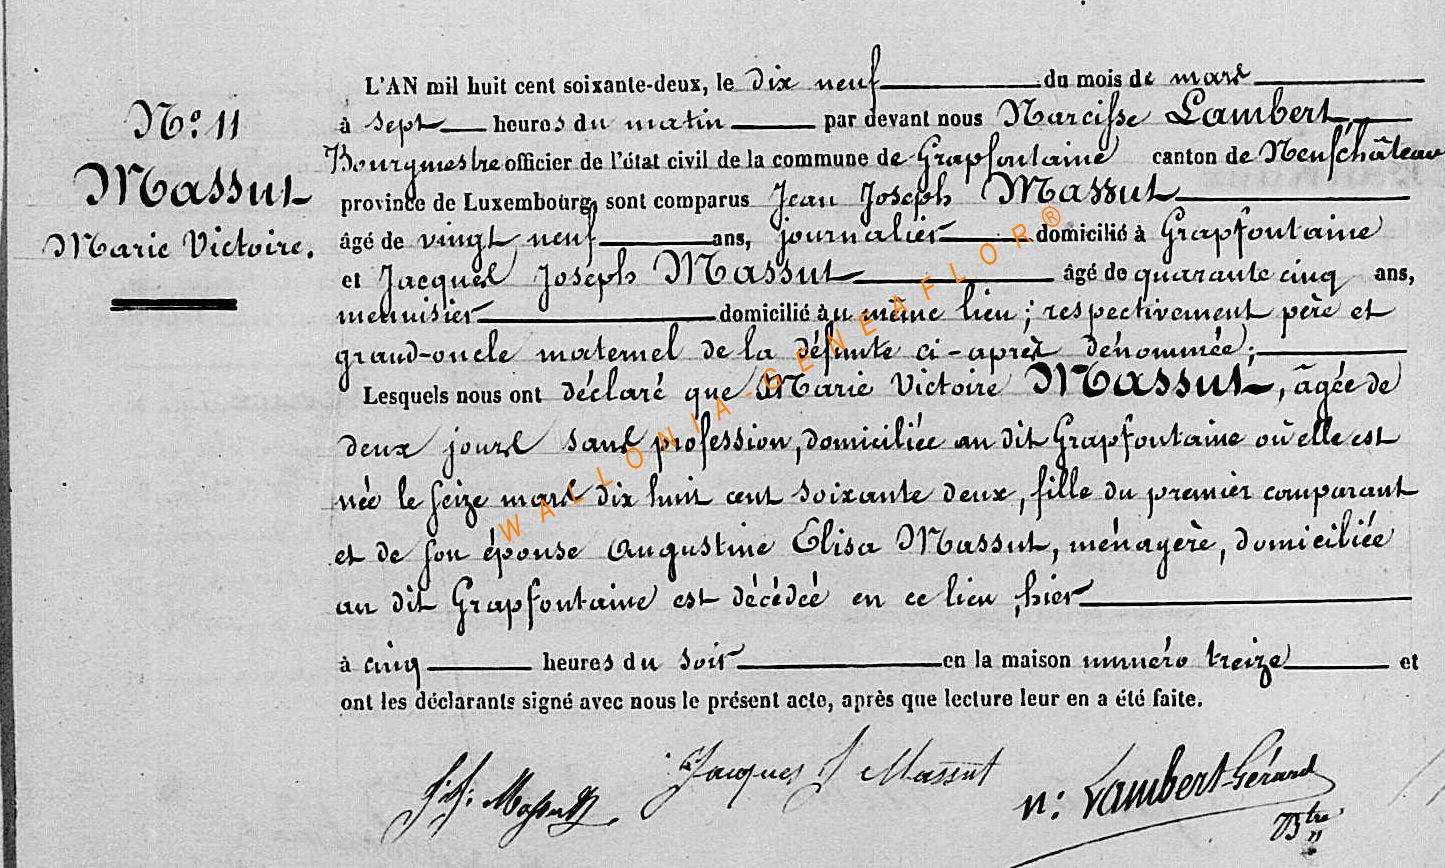 N.º 11
Massut
Marie Victoire.
L'AN mil huit cent soixante-deux, le dix neuf du mois de mars
à sept heures du matin par devant nous Narcisse Lambert
Bourgmestre officier de l'état civil de la commune de Grapfontaine canton de Neufchâteau
province de Luxembourg, sont comparus Jean Joseph Massut
âgé de vingt neuf ans, journalier domicilié à Grapfontaine
et Jacques Joseph Massut âgé de quarante cinq ans,
menuisier domicilié au même lieu ; respectivement père et
grand-oncle maternel de la défunte ci-après dénommée ;
Lesquels nous ont déclaré que Marie Victoire Massut, âgée de
deux jours sans profession, domiciliée au dit Grapfontaine où elle est
née le seize mars dix huit cent soixante deux, fille du premier comparant
et de son épouse Augustine Elisa Massut, ménagère, domiciliée
au dit Grapfontaine est décédée en ce lieu, hier
à cinq heures du soir en la maison numéro treize et
ont les déclarants signé avec nous le présent acte, après que lecture leur en a été faite.
J. J. Massut
Jacques J Massut
N: Lambert Gérard
Btre
WALLONIA-GENEAFLOR®